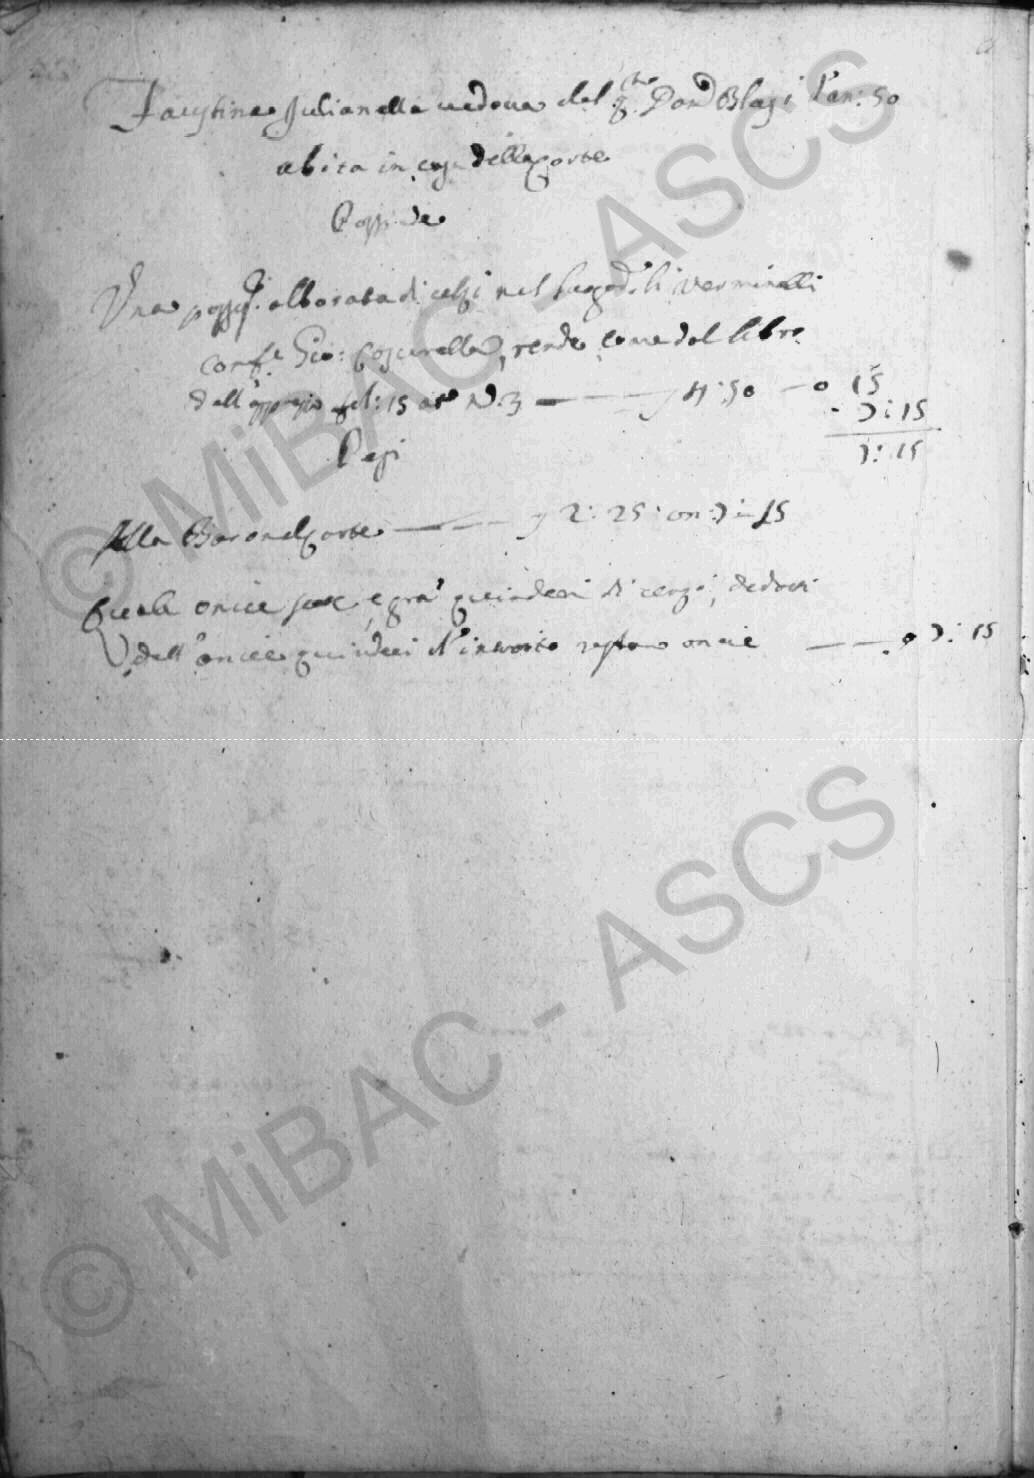 Faustina Julianella vedova del q.m Don Blasi d'an: 50
abita in casa della Corte
Possiede
Una poss.e alborata di celsi nel luogo d.o li Verminelli
conf.e Gio: Coscarella, rende come dal libro
dell'apprezzo fol: 15 at.o N. 3 — 4:50 — o 15
7:15
7:15
Pesi
Alla Baronal Corte — 2:25: on: 7:15
Quali oncie sette, e grana quindeci di pesi, dedotti
dall'oncie quindeci d'introito restano oncie — o 7:15
© MiBAC - ASCS
© MiBAC - ASCS